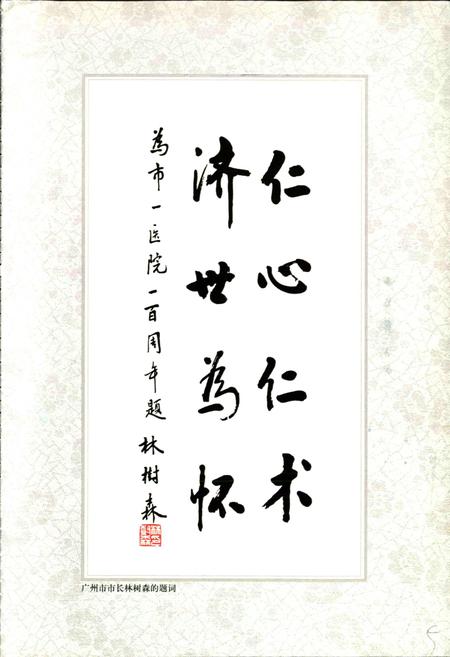 仁心仁术
济世為怀
為市一医院一百周年题 林树森
广州市市长林树森的题词